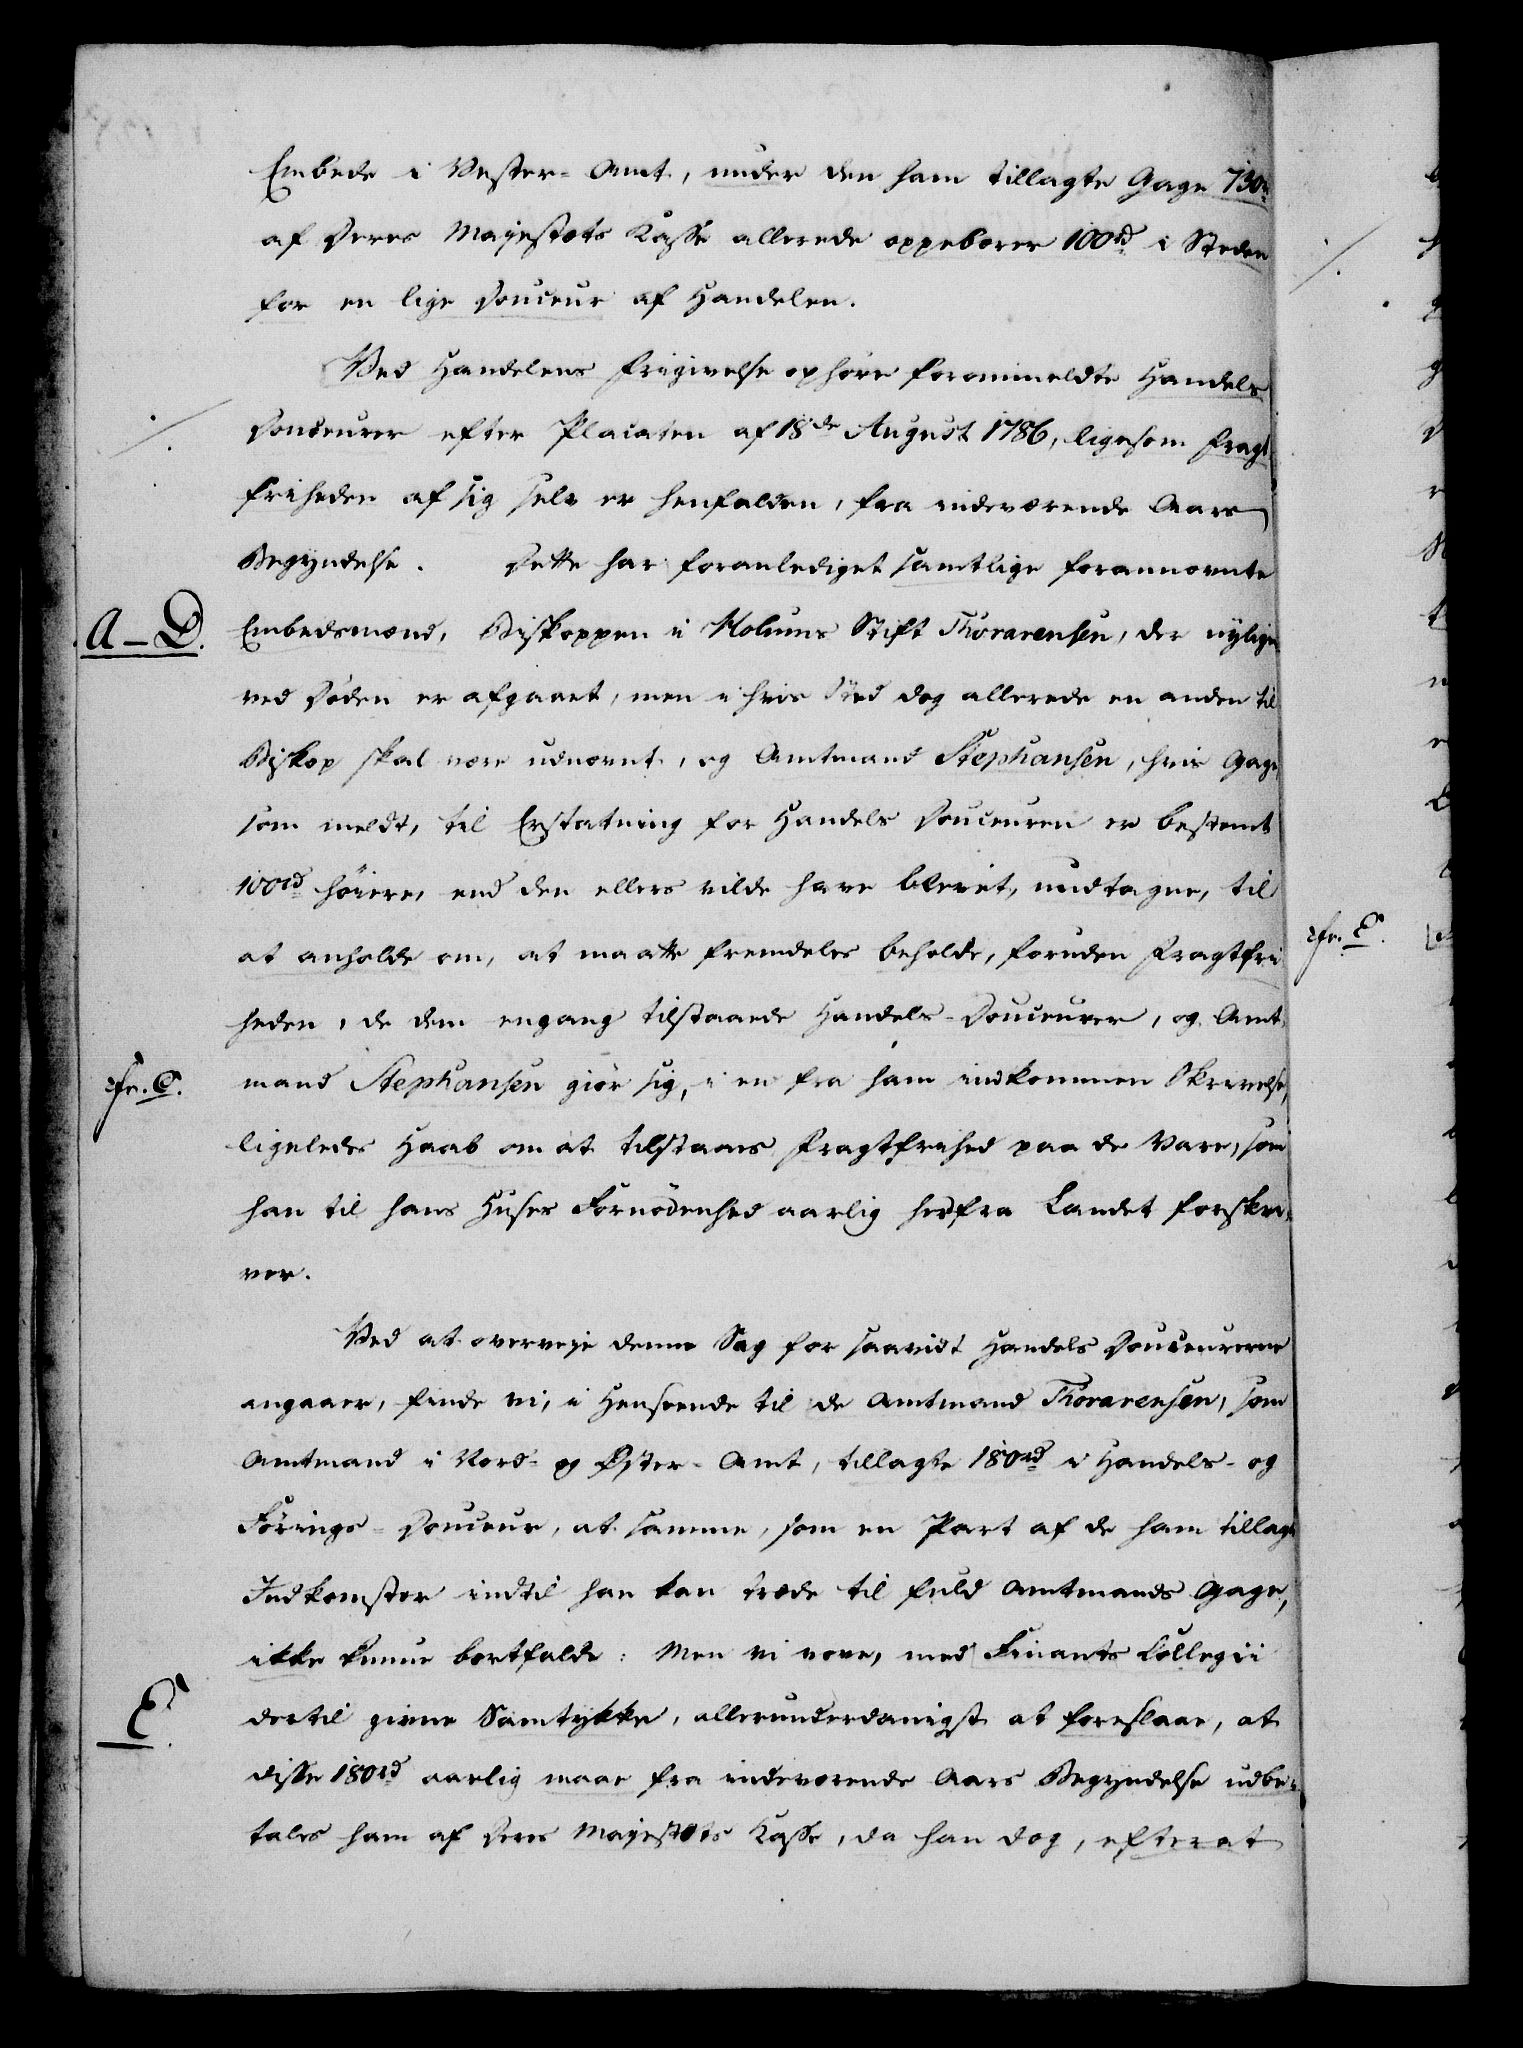 Embede i Vester-Amt, under den ham tillagte Gage 730rd
af Deres Majestæts Kasse allerede oppebærer 100rd i Steden
for en lige Douceur af Handelen.
Ved Handelens Frigivelse ophøre forommeldte Handels
Douceurer efter Placaten af 18de August 1786, ligesom Fragt-
friheden af sig selv er henfalden, fra indeværende Aars
Begyndelse. Dette har foranlediget samtlige forannævnte
A-D. Embedsmænd, Biskoppen i Holums Stift Thorarensen, der nylig
ved Døden er afgaaet, men i hvis Sted dog allerede en anden til
Biskop skal være udnævnt, og Amtmand Stephansen, hvis Gage
som meldt, til Erstatning for Handels Douceuren er bestemt
100rd høiere, end den ellers vilde have blevet, undtagne, til
at anholde om, at maatte fremdeles beholde, foruden Fragtfri-
heden, de dem engang tilstaaede Handels-Douceurer, og Amt-
cfr. C. mand Stephansen giør sig, i en fra ham indkommen Skrivelse,
ligeledes Haab om at tilstaaes Fragtfrihed paa de Vare, som
han til hans Huses Fornødenhed aarlig herfra Landet forskri-
ver.
Ved at overveje denne Sag for saavidt Handels Douceurerne
angaaer, finde vi, i Henseende til de Amtmand Thorarensen, som
Amtmand i Nord- og Øster-Amt, tillagte 180rd i Handels- og
Førings-Douceur, at samme, som en Part af de ham tillagte
Indkomster indtil han kan træde til fuld Amtmands Gage,
ikke kunne bortfalde: Men vi vove, med Finants Collegii
E. dertil givne Samtykke, allerunderdanigst at foreslaae, at
disse 180rd aarlig maae fra indeværende Aars Begyndelse udbe-
tales ham af Deres Majestæts Kasse, da han dog, efterat
cfr. E.